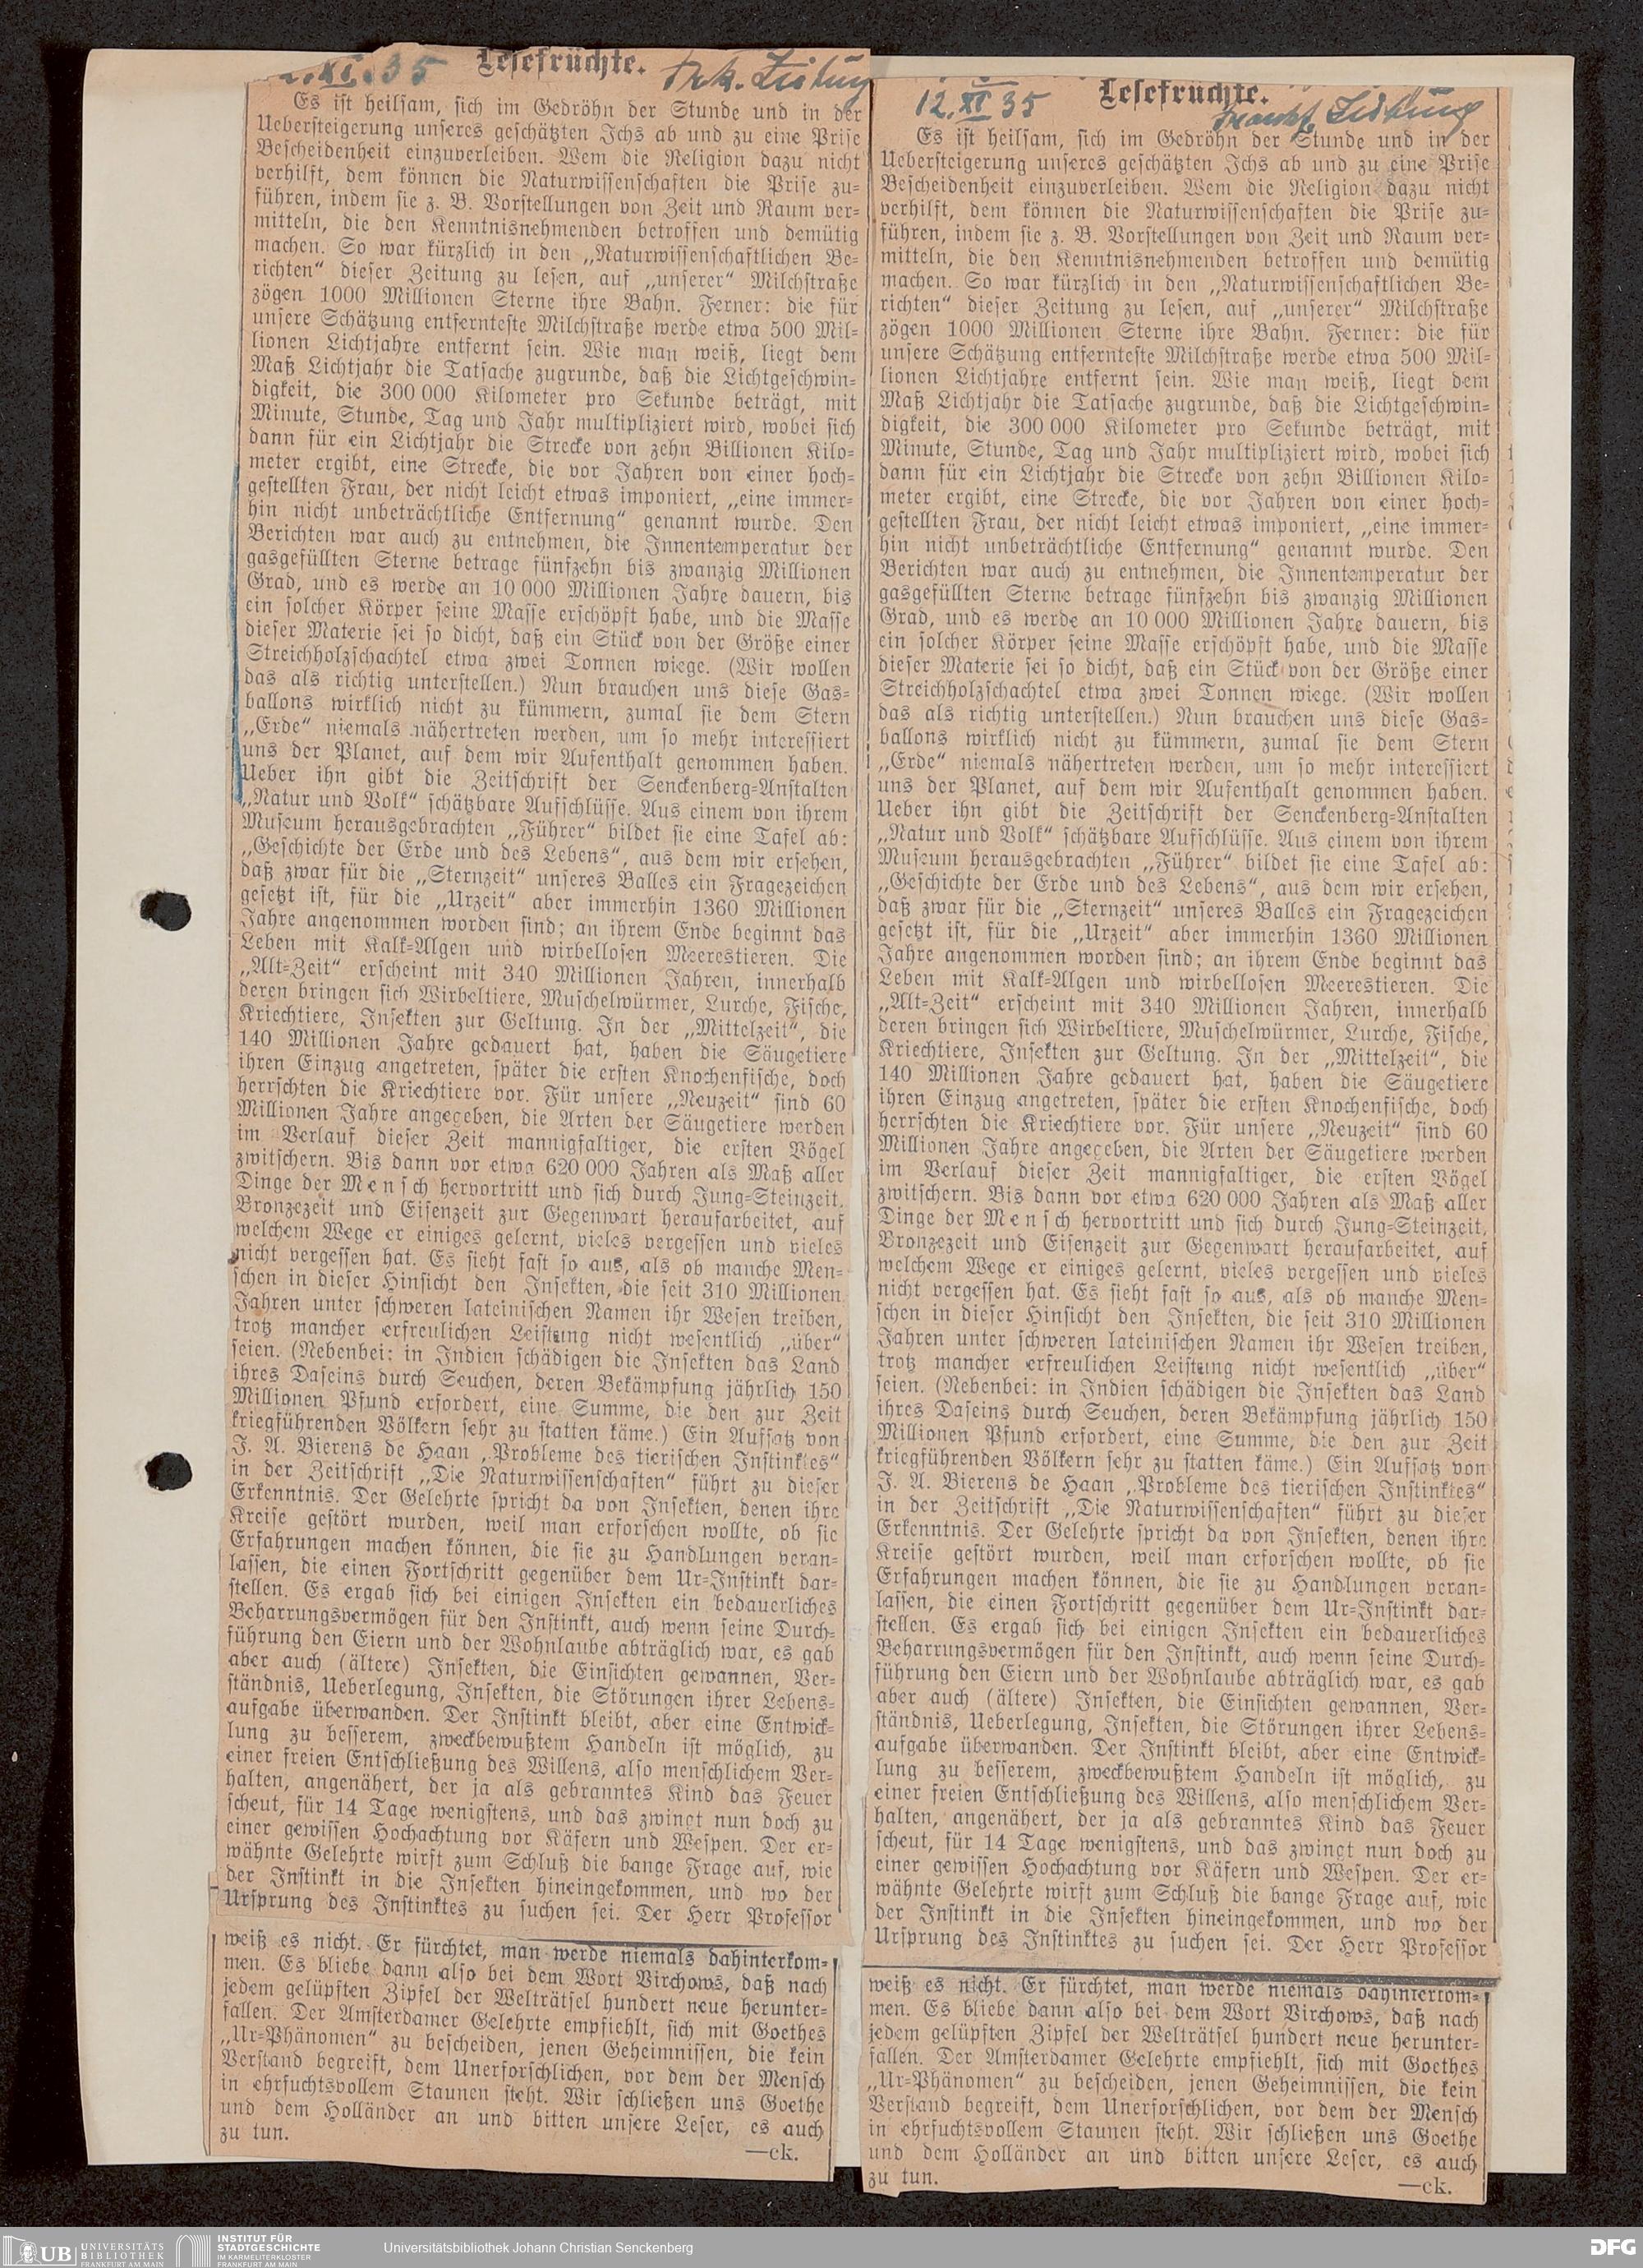 2.XI.35 Lesefrüchte. Frk. Zeitung
Es ist heilsam, sich im Gedröhn der Stunde und in der
Uebersteigerung unseres geschätzten Ichs ab und zu eine Prise
Bescheidenheit einzuverleiben. Wem die Religion dazu nicht
verhilft, dem können die Naturwissenschaften die Prise zu-
führen, indem sie z. B. Vorstellungen von Zeit und Raum ver-
mitteln, die den Kenntnisnehmenden betroffen und demütig
machen. So war kürzlich in den „Naturwissenschaftlichen Be-
richten“ dieser Zeitung zu lesen, auf „unserer“ Milchstraße
zögen 1000 Millionen Sterne ihre Bahn. Ferner: die für
unsere Schätzung entfernteste Milchstraße werde etwa 500 Mil-
lionen Lichtjahre entfernt sein. Wie man weiß, liegt dem
Maß Lichtjahr die Tatsache zugrunde, daß die Lichtgeschwin-
digkeit, die 300 000 Kilometer pro Sekunde beträgt, mit
Minute, Stunde, Tag und Jahr multipliziert wird, wobei sich
dann für ein Lichtjahr die Strecke von zehn Billionen Kilo-
meter ergibt, eine Strecke, die vor Jahren von einer hoch-
gestellten Frau, der nicht leicht etwas imponiert, „eine immer-
hin nicht unbeträchtliche Entfernung“ genannt wurde. Den
Berichten war auch zu entnehmen, die Innentemperatur der
gasgefüllten Sterne betrage fünfzehn bis zwanzig Millionen
Grad, und es werde an 10 000 Millionen Jahre dauern, bis
ein solcher Körper seine Masse erschöpft habe, und die Masse
dieser Materie sei so dicht, daß ein Stück von der Größe einer
Streichholzschachtel etwa zwei Tonnen wiege. (Wir wollen
das als richtig unterstellen.) Nun brauchen uns diese Gas-
ballons wirklich nicht zu kümmern, zumal sie dem Stern
„Erde“ niemals nähertreten werden, um so mehr interessiert
uns der Planet, auf dem wir Aufenthalt genommen haben.
Ueber ihn gibt die Zeitschrift der Senckenberg-Anstalten
„Natur und Volk“ schätzbare Aufschlüsse. Aus einem von ihrem
Museum herausgebrachten „Führer“ bildet sie eine Tafel ab:
„Geschichte der Erde und des Lebens“, aus dem wir ersehen,
daß zwar für die „Sternzeit“ unseres Balles ein Fragezeichen
gesetzt ist, für die „Urzeit“ aber immerhin 1360 Millionen
Jahre angenommen worden sind; an ihrem Ende beginnt das
Leben mit Kalk-Algen und wirbellosen Meerestieren. Die
„Alt-Zeit“ erscheint mit 340 Millionen Jahren, innerhalb
deren bringen sich Wirbeltiere, Muschelwürmer, Lurche, Fische,
Kriechtiere, Insekten zur Geltung. In der „Mittelzeit“, die
140 Millionen Jahre gedauert hat, haben die Säugetiere
ihren Einzug angetreten, später die ersten Knochenfische, doch
herrschten die Kriechtiere vor. Für unsere „Neuzeit“ sind 60
Millionen Jahre angegeben, die Arten der Säugetiere werden
im Verlauf dieser Zeit mannigfaltiger, die ersten Vögel
zwitschern. Bis dann vor etwa 620 000 Jahren als Maß aller
Dinge der Mensch hervortritt und sich durch Jung-Steinzeit,
Bronzezeit und Eisenzeit zur Gegenwart heraufarbeitet, auf
welchem Wege er einiges gelernt, vieles vergessen und vieles
nicht vergessen hat. Es sieht fast so aus, als ob manche Men-
schen in dieser Hinsicht den Insekten, die seit 310 Millionen
Jahren unter schweren lateinischen Namen ihr Wesen treiben,
trotz mancher erfreulichen Leistung nicht wesentlich „über“
seien. (Nebenbei: in Indien schädigen die Insekten das Land
ihres Daseins durch Seuchen, deren Bekämpfung jährlich 150
Millionen Pfund erfordert, eine Summe, die den zur Zeit
kriegführenden Völkern sehr zu statten käme.) Ein Aufsatz von
J. A. Bierens de Haan „Probleme des tierischen Instinktes“
in der Zeitschrift „Die Naturwissenschaften“ führt zu dieser
Erkenntnis. Der Gelehrte spricht da von Insekten, denen ihre
Kreise gestört wurden, weil man erforschen wollte, ob sie
Erfahrungen machen können, die sie zu Handlungen veran-
lassen, die einen Fortschritt gegenüber dem Ur-Instinkt dar-
stellen. Es ergab sich bei einigen Insekten ein bedauerliches
Beharrungsvermögen für den Instinkt, auch wenn seine Durch-
führung den Eiern und der Wohnlaube abträglich war, es gab
aber auch (ältere) Insekten, die Einsichten gewannen, Ver-
ständnis, Ueberlegung, Insekten, die Störungen ihrer Lebens-
aufgabe überwanden. Der Instinkt bleibt, aber eine Entwick-
lung zu besserem, zweckbewußtem Handeln ist möglich, zu
einer freien Entschließung des Willens, also menschlichem Ver-
halten, angenähert, der ja als gebranntes Kind das Feuer
scheut, für 14 Tage wenigstens, und das zwingt nun doch zu
einer gewissen Hochachtung vor Käfern und Wespen. Der er-
wähnte Gelehrte wirft zum Schluß die bange Frage auf, wie
der Instinkt in die Insekten hineingekommen, und wo der
Ursprung des Instinktes zu suchen sei. Der Herr Professor
weiß es nicht. Er fürchtet, man werde niemals dahinterkom-
men. Es bliebe dann also bei dem Wort Virchows, daß nach
jedem gelüpften Zipfel der Welträtsel hundert neue herunter-
fallen. Der Amsterdamer Gelehrte empfiehlt, sich mit Goethes
„Ur-Phänomen“ zu bescheiden, jenen Geheimnissen, die kein
Verstand begreift, dem Unerforschlichen, vor dem der Mensch
in ehrfuchtsvollem Staunen steht. Wir schließen uns Goethe
und dem Holländer an und bitten unsere Leser, es auch
zu tun.
—ck.
Lesefrüchte.
12. XI 35 Frankf. Zeitung
Es ist heilsam, sich im Gedröhn der Stunde und in der
Uebersteigerung unseres geschätzten Ichs ab und zu eine Prise
Bescheidenheit einzuverleiben. Wem die Religion dazu nicht
verhilft, dem können die Naturwissenschaften die Prise zu-
führen, indem sie z. B. Vorstellungen von Zeit und Raum ver-
mitteln, die den Kenntnisnehmenden betroffen und demütig
machen. So war kürzlich in den „Naturwissenschaftlichen Be-
richten“ dieser Zeitung zu lesen, auf „unserer“ Milchstraße
zögen 1000 Millionen Sterne ihre Bahn. Ferner: die für
unsere Schätzung entfernteste Milchstraße werde etwa 500 Mil-
lionen Lichtjahre entfernt sein. Wie man weiß, liegt dem
Maß Lichtjahr die Tatsache zugrunde, daß die Lichtgeschwin-
digkeit, die 300 000 Kilometer pro Sekunde beträgt, mit
Minute, Stunde, Tag und Jahr multipliziert wird, wobei sich
dann für ein Lichtjahr die Strecke von zehn Billionen Kilo-
meter ergibt, eine Strecke, die vor Jahren von einer hoch-
gestellten Frau, der nicht leicht etwas imponiert, „eine immer-
hin nicht unbeträchtliche Entfernung“ genannt wurde. Den
Berichten war auch zu entnehmen, die Innentemperatur der
gasgefüllten Sterne betrage fünfzehn bis zwanzig Millionen
Grad, und es werde an 10 000 Millionen Jahre dauern, bis
ein solcher Körper seine Masse erschöpft habe, und die Masse
dieser Materie sei so dicht, daß ein Stück von der Größe einer
Streichholzschachtel etwa zwei Tonnen wiege. (Wir wollen
das als richtig unterstellen.) Nun brauchen uns diese Gas-
ballons wirklich nicht zu kümmern, zumal sie dem Stern
„Erde“ niemals nähertreten werden, um so mehr interessiert
uns der Planet, auf dem wir Aufenthalt genommen haben.
Ueber ihn gibt die Zeitschrift der Senckenberg-Anstalten
„Natur und Volk“ schätzbare Aufschlüsse. Aus einem von ihrem
Museum herausgebrachten „Führer“ bildet sie eine Tafel ab:
„Geschichte der Erde und des Lebens“, aus dem wir ersehen,
daß zwar für die „Sternzeit“ unseres Balles ein Fragezeichen
gesetzt ist, für die „Urzeit“ aber immerhin 1360 Millionen
Jahre angenommen worden sind; an ihrem Ende beginnt das
Leben mit Kalk-Algen und wirbellosen Meerestieren. Die
„Alt-Zeit“ erscheint mit 340 Millionen Jahren, innerhalb
deren bringen sich Wirbeltiere, Muschelwürmer, Lurche, Fische,
Kriechtiere, Insekten zur Geltung. In der „Mittelzeit“, die
140 Millionen Jahre gedauert hat, haben die Säugetiere
ihren Einzug angetreten, später die ersten Knochenfische, doch
herrschten die Kriechtiere vor. Für unsere „Neuzeit“ sind 60
Millionen Jahre angegeben, die Arten der Säugetiere werden
im Verlauf dieser Zeit mannigfaltiger, die ersten Vögel
zwitschern. Bis dann vor etwa 620 000 Jahren als Maß aller
Dinge der Mensch hervortritt und sich durch Jung-Steinzeit,
Bronzezeit und Eisenzeit zur Gegenwart heraufarbeitet, auf
welchem Wege er einiges gelernt, vieles vergessen und vieles
nicht vergessen hat. Es sieht fast so aus, als ob manche Men-
schen in dieser Hinsicht den Insekten, die seit 310 Millionen
Jahren unter schweren lateinischen Namen ihr Wesen treiben,
trotz mancher erfreulichen Leistung nicht wesentlich „über“
seien. (Nebenbei: in Indien schädigen die Insekten das Land
ihres Daseins durch Seuchen, deren Bekämpfung jährlich 150
Millionen Pfund erfordert, eine Summe, die den zur Zeit
kriegführenden Völkern sehr zu statten käme.) Ein Aufsatz von
J. A. Bierens de Haan „Probleme des tierischen Instinktes“
in der Zeitschrift „Die Naturwissenschaften“ führt zu dieser
Erkenntnis. Der Gelehrte spricht da von Insekten, denen ihre
Kreise gestört wurden, weil man erforschen wollte, ob sie
Erfahrungen machen können, die sie zu Handlungen veran-
lassen, die einen Fortschritt gegenüber dem Ur-Instinkt dar-
stellen. Es ergab sich bei einigen Insekten ein bedauerliches
Beharrungsvermögen für den Instinkt, auch wenn seine Durch-
führung den Eiern und der Wohnlaube abträglich war, es gab
aber auch (ältere) Insekten, die Einsichten gewannen, Ver-
ständnis, Ueberlegung, Insekten, die Störungen ihrer Lebens-
aufgabe überwanden. Der Instinkt bleibt, aber eine Entwick-
lung zu besserem, zweckbewußtem Handeln ist möglich, zu
einer freien Entschließung des Willens, also menschlichem Ver-
halten, angenähert, der ja als gebranntes Kind das Feuer
scheut, für 14 Tage wenigstens, und das zwingt nun doch zu
einer gewissen Hochachtung vor Käfern und Wespen. Der er-
wähnte Gelehrte wirft zum Schluß die bange Frage auf, wie
der Instinkt in die Insekten hineingekommen, und wo der
Ursprung des Instinktes zu suchen sei. Der Herr Professor
weiß es nicht. Er fürchtet, man werde niemals dahinterkom-
men. Es bliebe dann also bei dem Wort Virchows, daß nach
jedem gelüpften Zipfel der Welträtsel hundert neue herunter-
fallen. Der Amsterdamer Gelehrte empfiehlt, sich mit Goethes
„Ur-Phänomen“ zu bescheiden, jenen Geheimnissen, die kein
Verstand begreift, dem Unerforschlichen, vor dem der Mensch
in ehrfuchtsvollem Staunen steht. Wir schließen uns Goethe
und dem Holländer an und bitten unsere Leser, es auch
zu tun.
—ck.
UB UNIVERSITÄTS
BIBLIOTHEK
FRANKFURT AM MAIN
INSTITUT FÜR
STADTGESCHICHTE
IM KARMELITERKLOSTER
FRANKFURT AM MAIN
Universitätsbibliothek Johann Christian Senckenberg
DFG